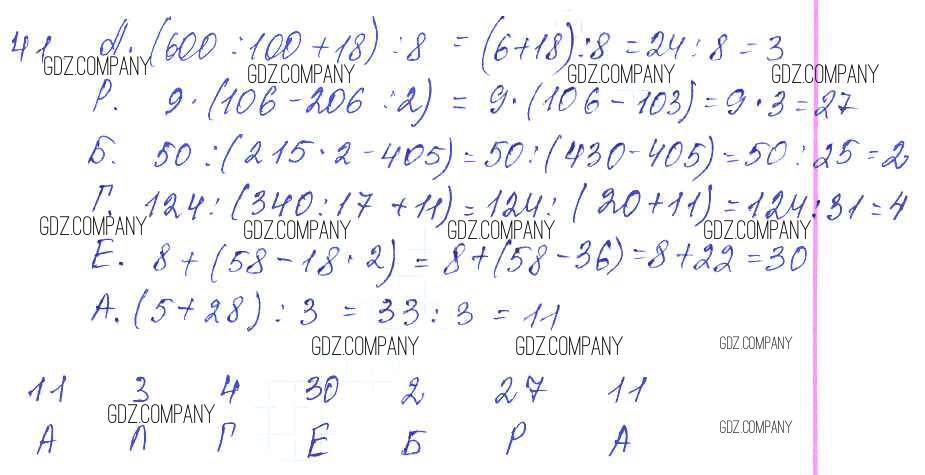 41 Л. (600 : 100 + 18) : 8 = (6+18) : 8 = 24 : 8 = 3
GDZ.COMPANY GDZ.COMPANY GDZ.COMPANY GDZ.COMPANY
Р. 9 · (106 - 206 : 2) = 9 · (106 - 103) = 9 · 3 = 27
Б. 50 : (215 · 2 - 405) = 50 : (430 - 405) = 50 : 25 = 2
Г. 124 : (340 : 17 + 11) = 124 : (20 + 11) = 124 : 31 = 4
GDZ.COMPANY GDZ.COMPANY GDZ.COMPANY GDZ.COMPANY
Е. 8 + (58 - 18 · 2) = 8 + (58 - 36) = 8 + 22 = 30
А. (5 + 28) : 3 = 33 : 3 = 11
GDZ.COMPANY GDZ.COMPANY GDZ.COMPANY
11 3 4 30 2 27 11
GDZ.COMPANY GDZ.COMPANY
А Л Г Е Б Р А